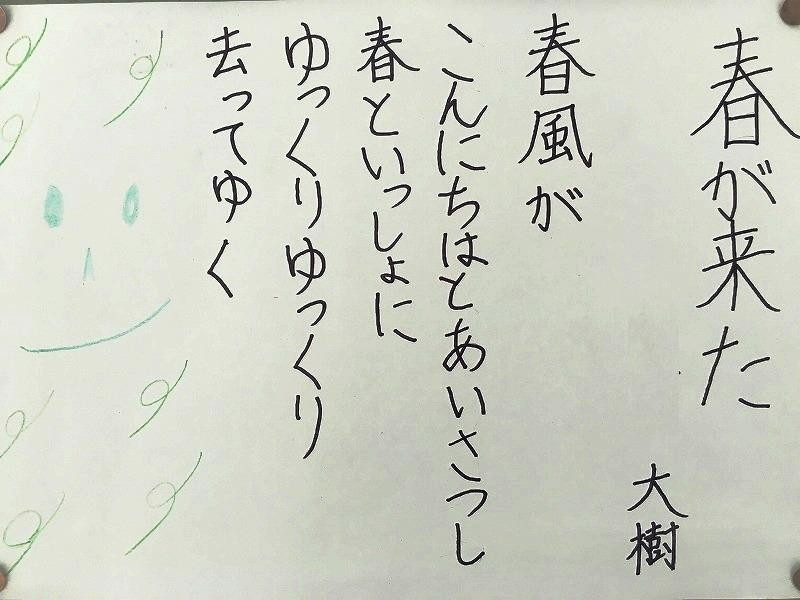 春が来た
大樹
春風が
こんにちはとあいさつし
春といっしょに
ゆっくりゆっくり
去ってゆく